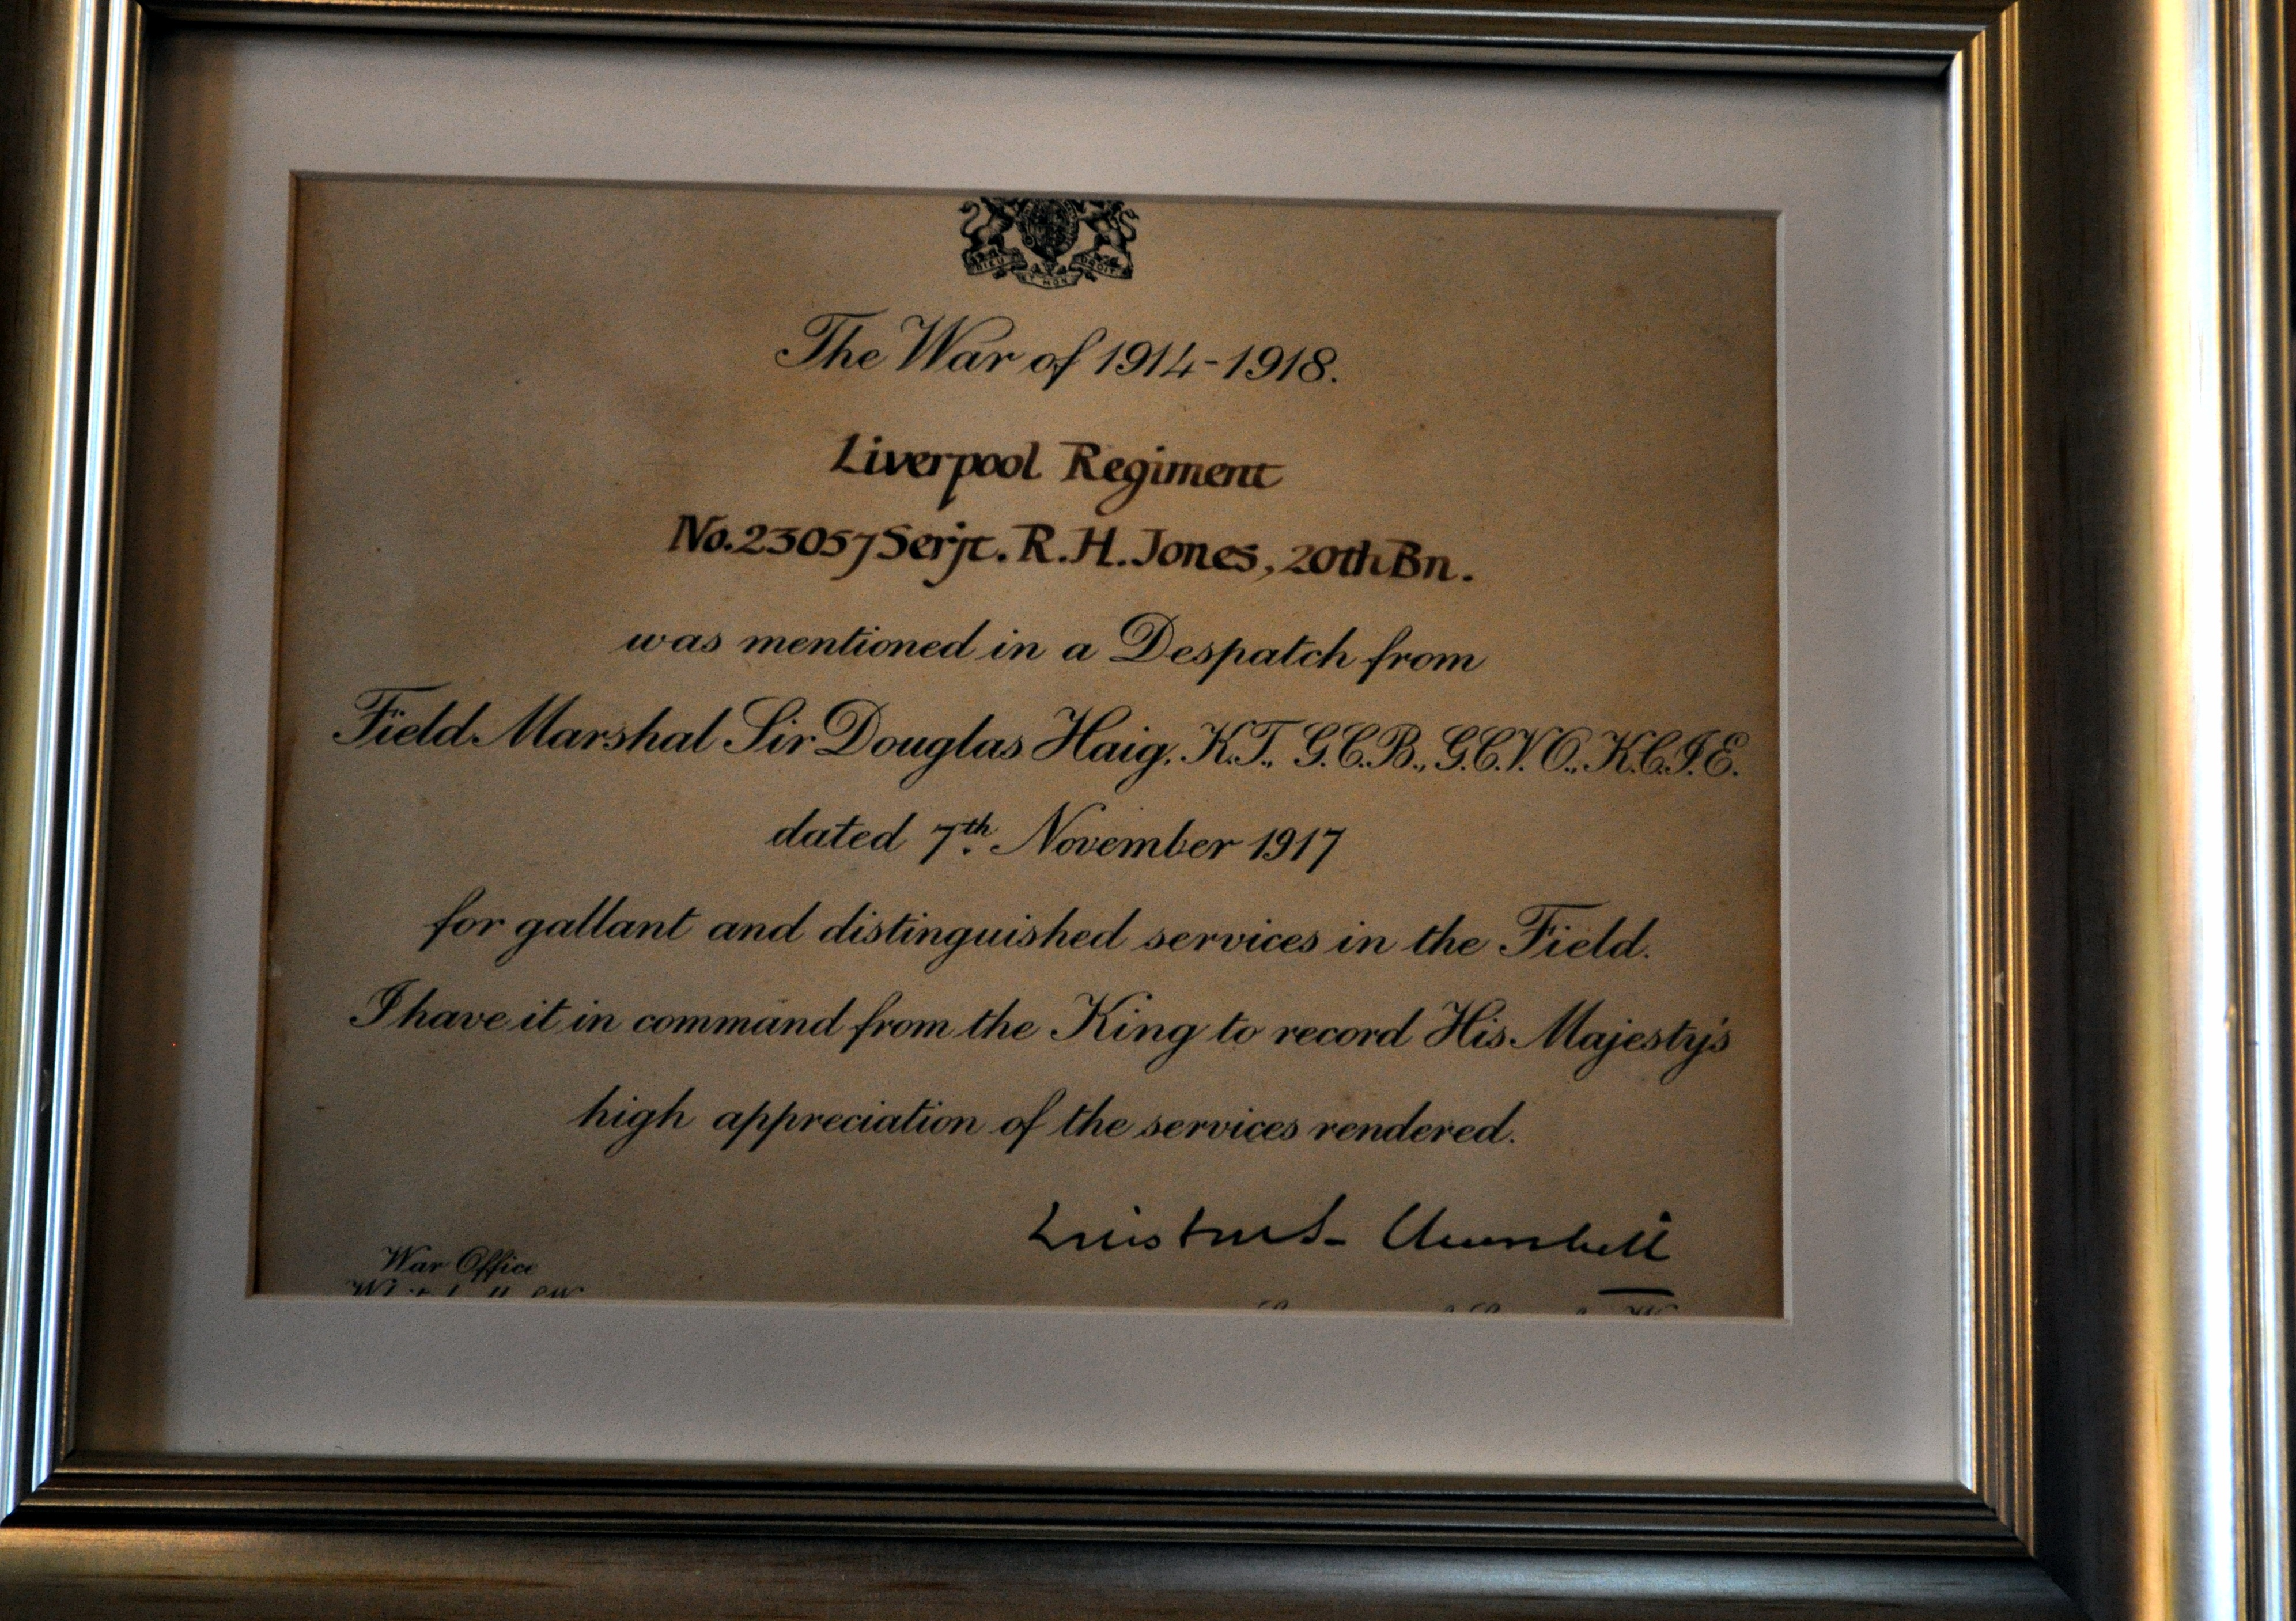 DIEU ET MON DROIT
The War of 1914-1918.
Liverpool Regiment
No.23057 Serjt. R.H. Jones, 20th Bn.
was mentioned in a Despatch from
Field Marshal Sir Douglas Haig, K.T., G.C.B., G.C.V.O., K.C.I.E.
dated 7th November 1917
for gallant and distinguished services in the Field.
I have it in command from the King to record His Majesty's
high appreciation of the services rendered.
Winston S. Churchill
War Office